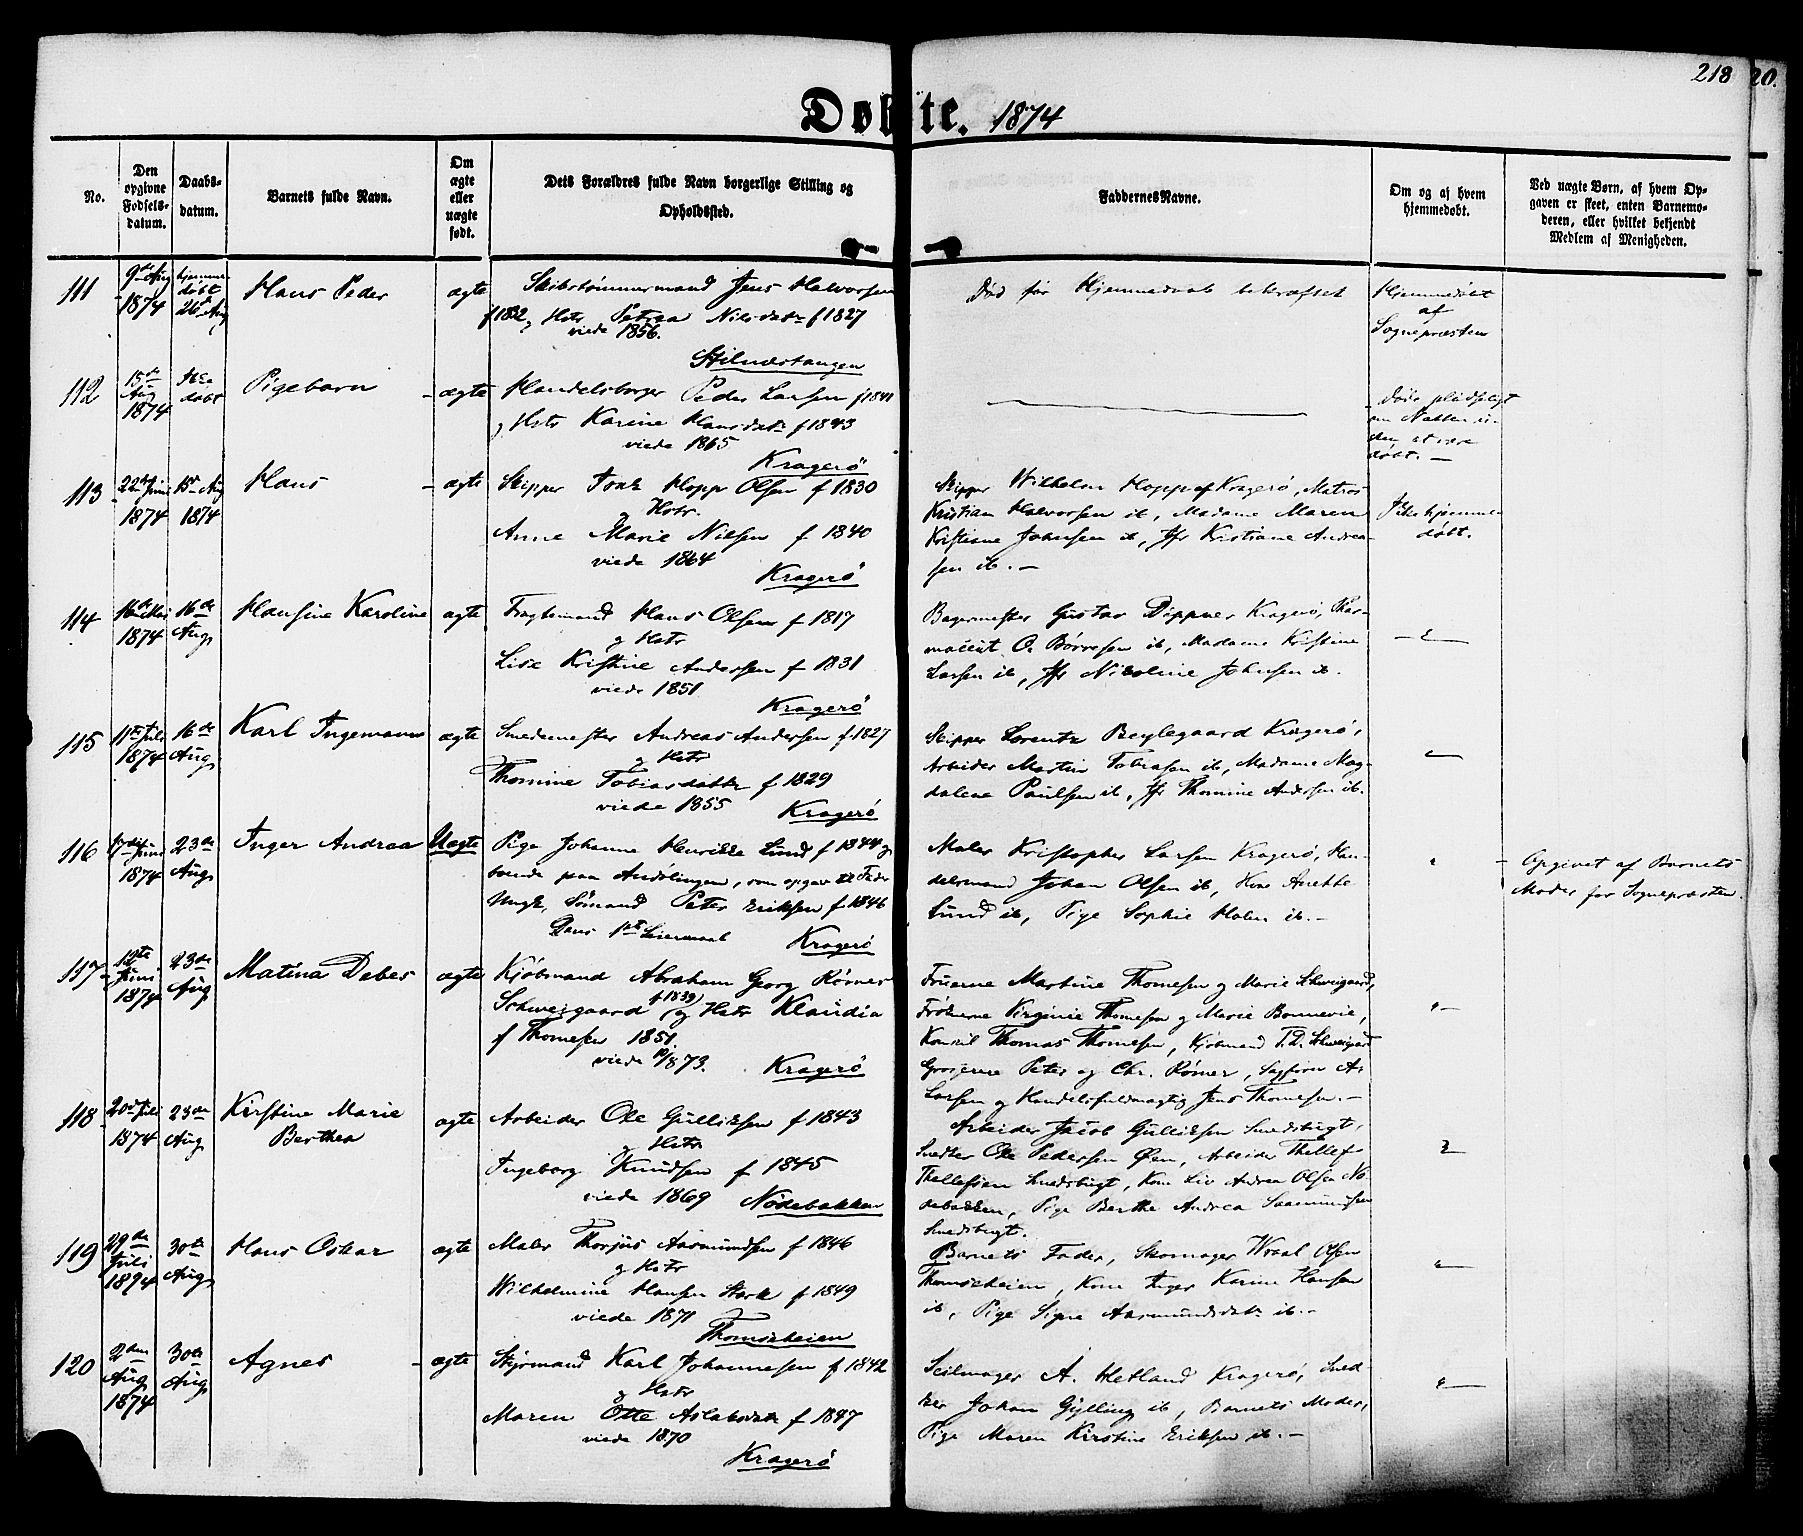 218
20.
Døbte. 1874
No.
Den opgivne Fødsels-datum.
Daabs-datum.
Barnets fulde Navn.
Om ægte eller uægte født.
Dets Forældres fulde Navn borgerlige Stilling og Opholdssted.
Faddernes Navne.
Om og af hvem hjemmedøbt.
Ved uægte Børn, af hvem Opgaven er skeet, enten Barnemoderen, eller hvilket bekjendt Medlem af Menigheden.
111
9de Aug 1874
hjemmedøbt 26 Aug
Hans Peder
ægte
Skibstømmermand Jens Halvorsen
f 1832 og Hstr Petrea Nilsdatr f 1827
viede 1856.
Stilnæstangen
Død før Hjemmedaab bekræftet
Hjemmedøbt
af
Sognepræsten
112
15de Aug 1874
døbt
Pigebarn
ægte
Handelsborger Peder Larsen f 1841
og Hstr Karine Hansdatr f 1843
viede 1865
Kragerö
Døde pludseligt
om Natten u-
den at være
døbt. —
113
22de Juni 1874
15de Aug 1874
Hans
ægte
Skipper Hopp Olsen f 1830
og Hstr.
Anne Marie Nilsen f 1840
viede 1864
Kragerö
Skipper Wilhelm Hopp af Kragerö, Matros
Kristian Halvorsen ib, Madame Maren
Kristiane Johnsen ib, Jfr Kristiane Andrea-
sen ib. —
Ikke hjemme
døbt.
114
16de Mai 1874
16de Aug
Hansine Karoline
ægte
Fragtemand Hans Olsen f 1817
og Hstr
Lise Kristine Andersen f 1831
viede 1851
Kragerö
Bagermester Gustav Dippner Kragerö, Phar-
maceut O. Børresen ib, Madame Kristine
Larsen ib, Jfr Nicoline Johnsen ib.
115
11te Juli 1874
16de Aug
Karl Ingemann
ægte
Smedemester Andreas Andersen f 1827
og Hstr
Thomine Tobiasdattr f 1829
viede 1855
Kragerö
Skipper Lorentz Beylegaard Kragerö,
Arbeider Martin Tobiasen ib, Madame Mag-
dalene Paulsen ib, Jfr Thomine Andersen ib.
116
17de Juni 1874
23de Aug
Inger Andrea
Uægte
Pige Johanne Henrikke Lund f 1844
boende paa Andølingen, som opgav til Fader
Ungk. Sømand Peter Eriksen f 1846
Deres 1ste Leiermaal
Kragerö
Maler Kristopher Larsen Kragerö, Han-
delsmand Johan Olsen ib, Kone Anette
Lund ib, Pige Sophie Holm ib. —
Opgivet af Barnets
Moder for Sognepræsten.
117
12te Juni 1874
23de Aug
Matina Debes
ægte
Kjøbmand Abraham Georg Rømer
Schweigaard (f 1839) og Hstr Klaudia
f Thomesen 1851.
viede /873.
Kragerö
Fruerne Martine Thomesen og Marie Schweigaard,
Frøknerne Virginie Thomesen og Marie Bonnevie,
Konsul Thomas Thomesen, Kjøbmand T.D. Schweigaard
Grosserne Peter og Chr. Rømer, A.
Larsen og Handelsfuldmægtig Jens Thomesen. —
118
20de Juli 1874
23de Aug
Kirstine Marie
Berthea
ægte
Arbeider Ole Gulliksen f 1843
og Hstr
Ingeborg Knudsen f 1845
viede 1869
Nödebakken
Arbeider Jacob Gulliksen Smedsbugt,
Snedker Ole Pedersen Øen, Arbeider Thellef
Thellefsen Smedsbugt, Kone Liv Andrea Olsen Nö-
debakken, Pige Berthe Andrea Saamundsen
Smedsbugt.
119
29de Juli 1874
30te Aug
Hans Oskar
ægte
Maler Thorjus Aasmundsen f 1846
og Hstr
Wilhelmine Hansen Stork f 1849
viede 1871
Thomseheien
Barnets Fader, Skomager Wraal Olsen
Thomseheien, Kone Inger Karine Hansen
ib, Pige Signe Aasmundsdatr ib. —
120
2den Aug 1874
30te Aug
Agnes
ægte
Styrmand Karl Johannesen f 1842
og Hstr
Maren Otte Aslaksdatr f 1847
viede 1870
Kragerö
Seilmager A. Hetland Kragerö, Sned
ker Johan Gylling ib, Barnets Moder,
Pige Maren Kirstine Eriksen ib. —